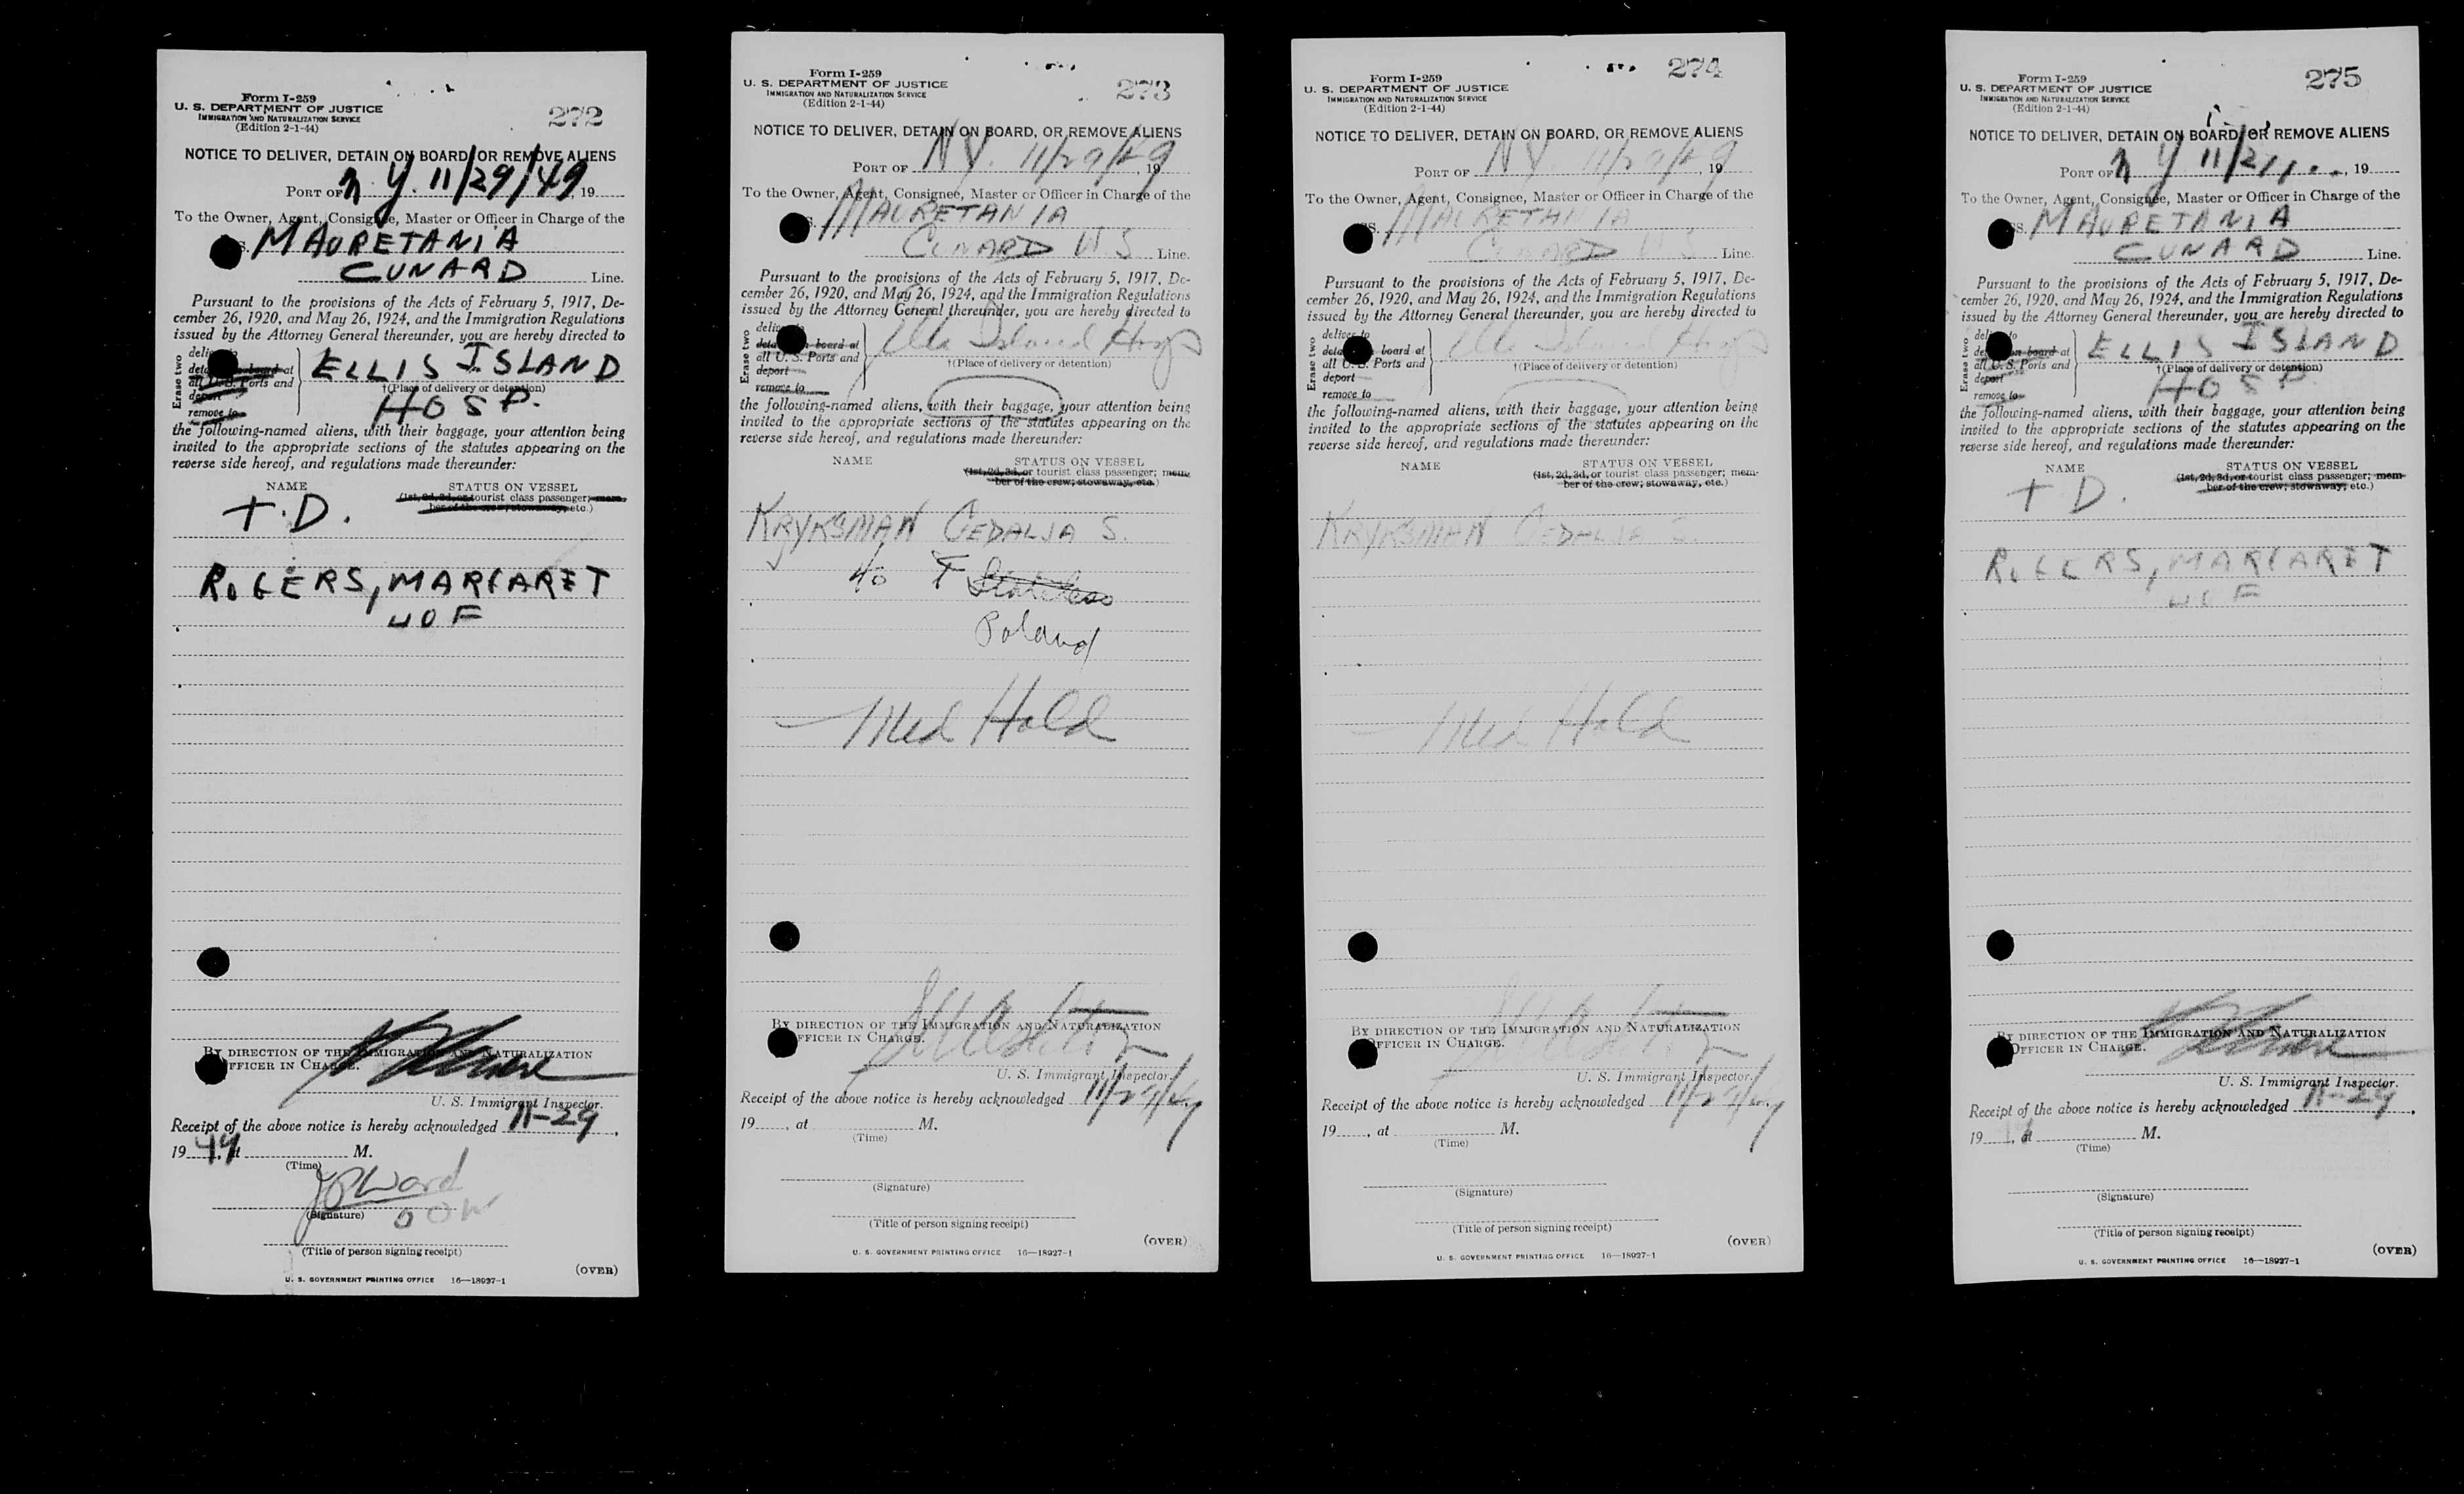 Form I-259
U. S. DEPARTMENT OF JUSTICE
IMMIGRATION AND NATURALIZATION SERVICE
(Edition 2-1-44)
272
NOTICE TO DELIVER, DETAIN ON BOARD, OR REMOVE ALIENS
PORT OF N. Y. 11/29/49, 19
To the Owner, Agent, Consignee, Master or Officer in Charge of the
S. MAURETANIA
CUNARD Line.
Pursuant to the provisions of the Acts of February 5, 1917, De-
cember 26, 1920, and May 26, 1924, and the Immigration Regulations
issued by the Attorney General thereunder, you are hereby directed to
Erase two
deliver to
detain on board at
all U. S. Ports and
deport
remove to
ELLIS ISLAND
†(Place of delivery or detention)
HOSP.
the following-named aliens, with their baggage, your attention being
invited to the appropriate sections of the statutes appearing on the
reverse side hereof, and regulations made thereunder:
NAME STATUS ON VESSEL
(1st, 2d, 3d, or tourist class passenger; mem-
ber of the crew; stowaway, etc.)
T.D.
ROGERS, MARGARET
40 F
BY DIRECTION OF THE IMMIGRATION AND NATURALIZATION
OFFICER IN CHARGE.
U. S. Immigrant Inspector.
Receipt of the above notice is hereby acknowledged 11-29,
19 49, at M.
(Time)
JPWard
(Signature)
(Title of person signing receipt)
(OVER)
U. S. GOVERNMENT PRINTING OFFICE 16—18927-1
Form I-259
U. S. DEPARTMENT OF JUSTICE
IMMIGRATION AND NATURALIZATION SERVICE
(Edition 2-1-44)
273
NOTICE TO DELIVER, DETAIN ON BOARD, OR REMOVE ALIENS
PORT OF N Y. 11/29/49, 19
To the Owner, Agent, Consignee, Master or Officer in Charge of the
S. MAURETANIA
CUNARD W S Line.
Pursuant to the provisions of the Acts of February 5, 1917, De-
cember 26, 1920, and May 26, 1924, and the Immigration Regulations
issued by the Attorney General thereunder, you are hereby directed to
Erase two
deliver to
detain on board at
all U. S. Ports and
deport
remove to
Ellis Island Hosp
†(Place of delivery or detention)
the following-named aliens, with their baggage, your attention being
invited to the appropriate sections of the statutes appearing on the
reverse side hereof, and regulations made thereunder:
NAME STATUS ON VESSEL
(1st, 2d, 3d, or tourist class passenger; mem-
ber of the crew; stowaway, etc.)
KRYKSMAN GEDALJA S.
40 F Stateless
Poland
— Med Hold
BY DIRECTION OF THE IMMIGRATION AND NATURALIZATION
OFFICER IN CHARGE.
U. S. Immigrant Inspector.
Receipt of the above notice is hereby acknowledged 11/29/49
19, at M.
(Time)
(Signature)
(Title of person signing receipt)
(OVER)
U. S. GOVERNMENT PRINTING OFFICE 16—18927-1
Form I-259
U. S. DEPARTMENT OF JUSTICE
IMMIGRATION AND NATURALIZATION SERVICE
(Edition 2-1-44)
274
NOTICE TO DELIVER, DETAIN ON BOARD, OR REMOVE ALIENS
PORT OF N Y. 11/29/49, 19
To the Owner, Agent, Consignee, Master or Officer in Charge of the
SS. MAURETANIA
CUNARD W S Line.
Pursuant to the provisions of the Acts of February 5, 1917, De-
cember 26, 1920, and May 26, 1924, and the Immigration Regulations
issued by the Attorney General thereunder, you are hereby directed to
Erase two
deliver to
detain on board at
all U. S. Ports and
deport
remove to
Ellis Island Hosp
†(Place of delivery or detention)
the following-named aliens, with their baggage, your attention being
invited to the appropriate sections of the statutes appearing on the
reverse side hereof, and regulations made thereunder:
NAME STATUS ON VESSEL
(1st, 2d, 3d, or tourist class passenger; mem-
ber of the crew; stowaway, etc.)
KRYKSMAN GEDALJA S.
— Med Hold
BY DIRECTION OF THE IMMIGRATION AND NATURALIZATION
OFFICER IN CHARGE.
U. S. Immigrant Inspector.
Receipt of the above notice is hereby acknowledged 11/29/49
19, at M.
(Time)
(Signature)
(Title of person signing receipt)
(OVER)
U. S. GOVERNMENT PRINTING OFFICE 16—18927-1
Form I-259
U. S. DEPARTMENT OF JUSTICE
IMMIGRATION AND NATURALIZATION SERVICE
(Edition 2-1-44)
275
NOTICE TO DELIVER, DETAIN ON BOARD, OR REMOVE ALIENS
PORT OF N Y 11/2, 19
To the Owner, Agent, Consignee, Master or Officer in Charge of the
SS. MAURETANIA
CUNARD Line.
Pursuant to the provisions of the Acts of February 5, 1917, De-
cember 26, 1920, and May 26, 1924, and the Immigration Regulations
issued by the Attorney General thereunder, you are hereby directed to
Erase two
deliver to
detain on board at
all U. S. Ports and
deport
remove to
ELLIS ISLAND
†(Place of delivery or detention)
HOSP.
the following-named aliens, with their baggage, your attention being
invited to the appropriate sections of the statutes appearing on the
reverse side hereof, and regulations made thereunder:
NAME STATUS ON VESSEL
(1st, 2d, 3d, or tourist class passenger; mem-
ber of the crew; stowaway, etc.)
T D.
ROGERS, MARGARET
40 F
BY DIRECTION OF THE IMMIGRATION AND NATURALIZATION
OFFICER IN CHARGE.
U. S. Immigrant Inspector.
Receipt of the above notice is hereby acknowledged 11-29,
19, at M.
(Time)
(Signature)
(Title of person signing receipt)
(OVER)
U. S. GOVERNMENT PRINTING OFFICE 16—18927-1